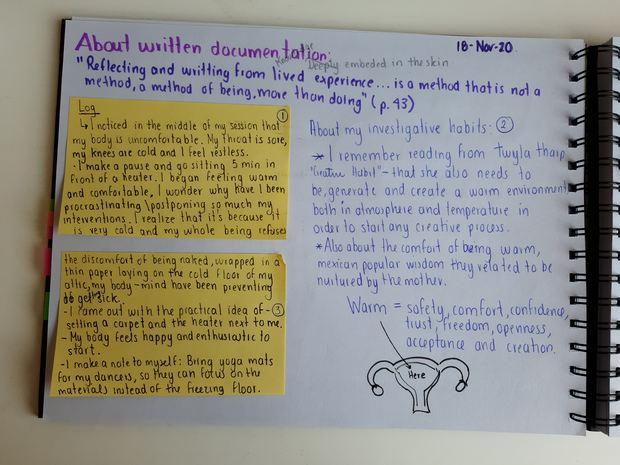 About written documentation:
18-Nov-20
Deeply embeded in the skin
"Reflecting and writting from lived experience... is a method that is not a
method, a method of being, more than doing" (p. 43)
Log
①
↳ I noticed in the middle of my session that
my body is uncomfortable. My throat is sore,
my knees are cold and I feel restless.
- I make a pause and go sitting 5 min in
front of a heater. I began feeling warm
and comfortable. I wonder why have I been
procrastinating \postponing so much my
interventions. I realize that it's because it
is very cold and my whole being refuses
the discomfort of being naked, wrapped in a
thin paper laying on the cold floor of my
attic, my body-mind have been preventing
to get sick.
- I came out with the practical idea of - ③
setting a carpet and the heater next to me.
- My body feels happy and enthusiastic to
start.
- I make a note to myself: Bring yoga mats
for my dancers, so they can focus on the
materials instead of the freezing floor.
About my investigative habits: ②
* I remember reading from Twyla tharp
"Creative Habit" - that she also needs to
be, generate and create a warm environment
both in atmosphere and temperature in
order to start any creative process.
* Also about the comfort of being warm,
mexican popular wisdom they related to be
nurtured by the mother.
Warm = safety, comfort, confidence,
trust, freedom, openness,
acceptance and creation.
Here